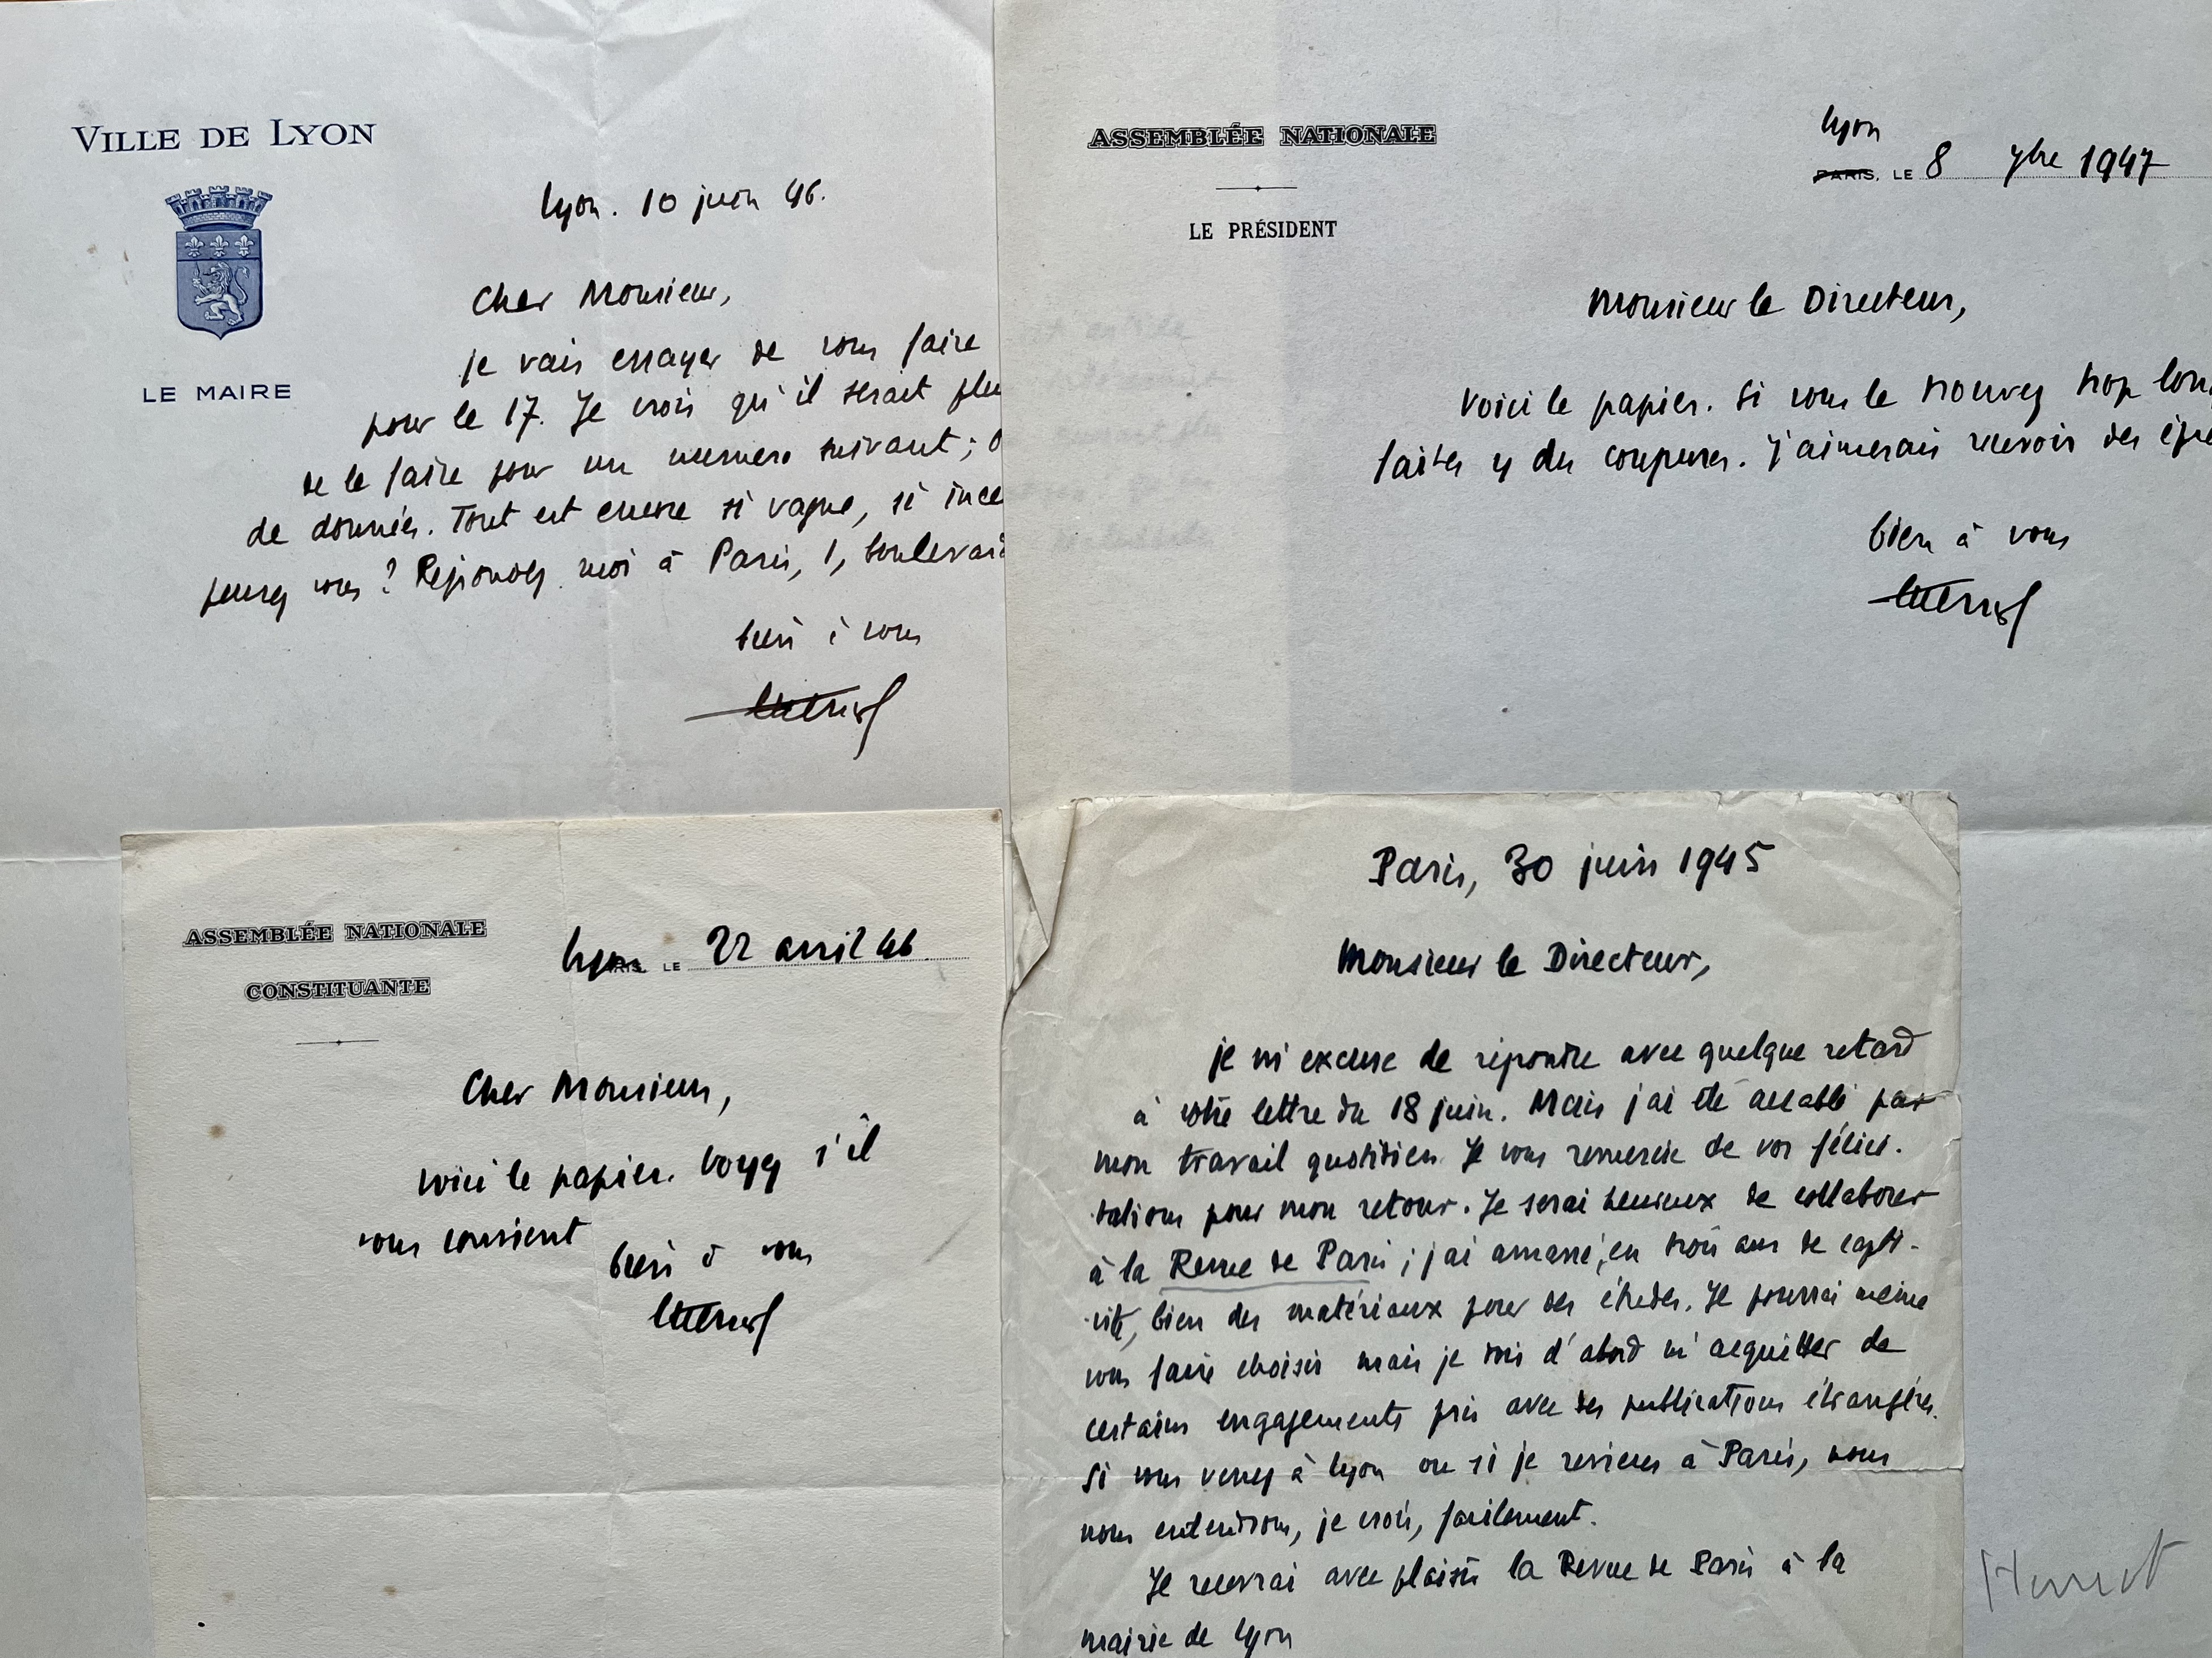 VILLE DE LYON
LE MAIRE
Lyon. 10 juin 46.
Cher Monsieur,
je vais essayer de vous faire
pour le 17. Je crois qu'il serait plu
de le faire pour un numéro suivant; o
de données. Tout est encore si vague, si ince
pensez vous? Répondez moi à Paris, 1, boulevard
bien à vous
ASSEMBLÉE NATIONALE
LE PRÉSIDENT
Lyon
PARIS, LE 8 7bre 1947
Monsieur le Directeur,
Voici le papier. Si vous le trouvez trop lon
faites y des coupures. J'aimerais recevoir des épre
bien à vous
ASSEMBLÉE NATIONALE
CONSTITUANTE
Lyon LE 22 avril 46
Cher Monsieur,
voici le papier. Voyez s'il
vous convient
bien à vous
Paris, 30 juin 1945
Monsieur le Directeur,
je m'excuse de répondre avec quelque retard
à votre lettre du 18 juin. Mais j'ai été accablé par
mon travail quotidien. Je vous remercie de vos félici-
tations pour mon retour. Je serai heureux de collaborer
à la Revue de Paris; j'ai amassé, en trois ans de capti-
vité, bien des matériaux pour des études. Je pourrai même
vous faire choisir mais je dois d'abord m'acquitter de
certains engagements pris avec des publications étrangères.
Si vous venez à Lyon ou si je reviens à Paris, nous
nous entendrons, je crois, facilement.
Je recevrai avec plaisir la Revue de Paris à la
mairie de Lyon
Herriot